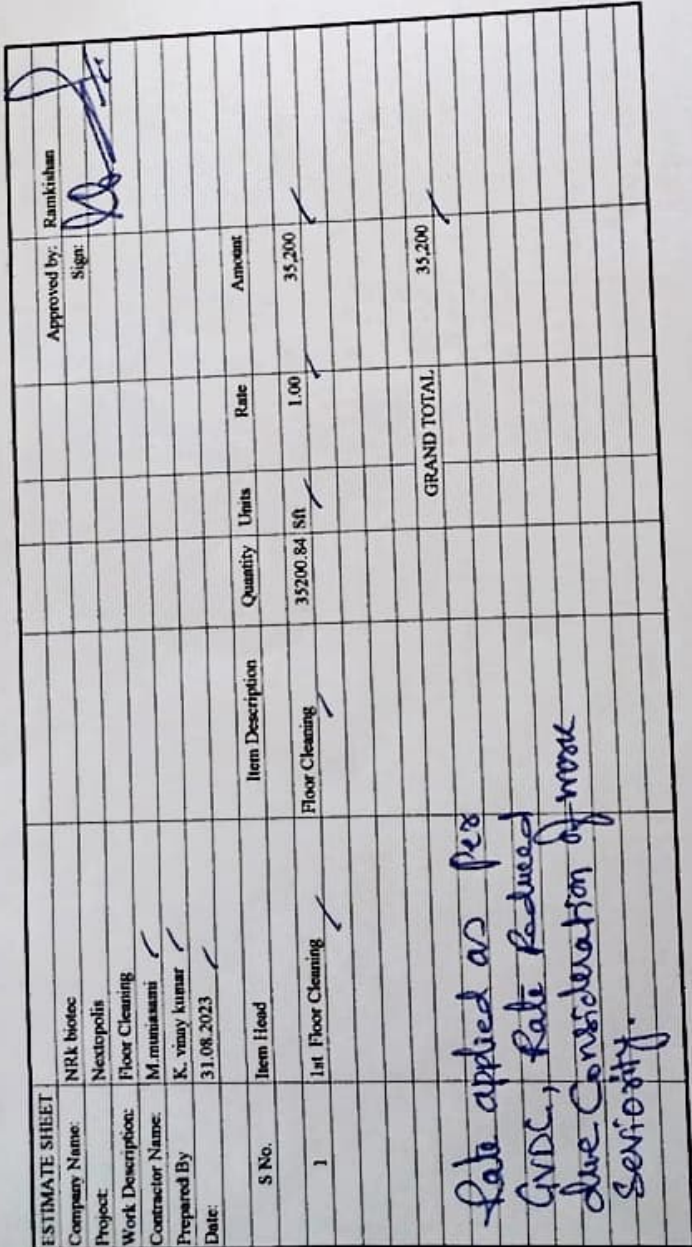 ESTIMATE SHEET Approved by: Ramkishan
Company Name: NRk biotec Sign:
Project: Nextopolis
Work Description: Floor Cleaning
Contractor Name: M.muniasami
Prepared By K. vinay kumar
Date: 31.08.2023
S No. Item Head Item Description Quantity Units Rate Amount
1 1st Floor Cleaning Floor Cleaning 35200.84 Sft 1.00 35,200
GRAND TOTAL 35,200
Rate applied as Per
GVDC, Rate Reduced
due Consideration of work
Seviority.